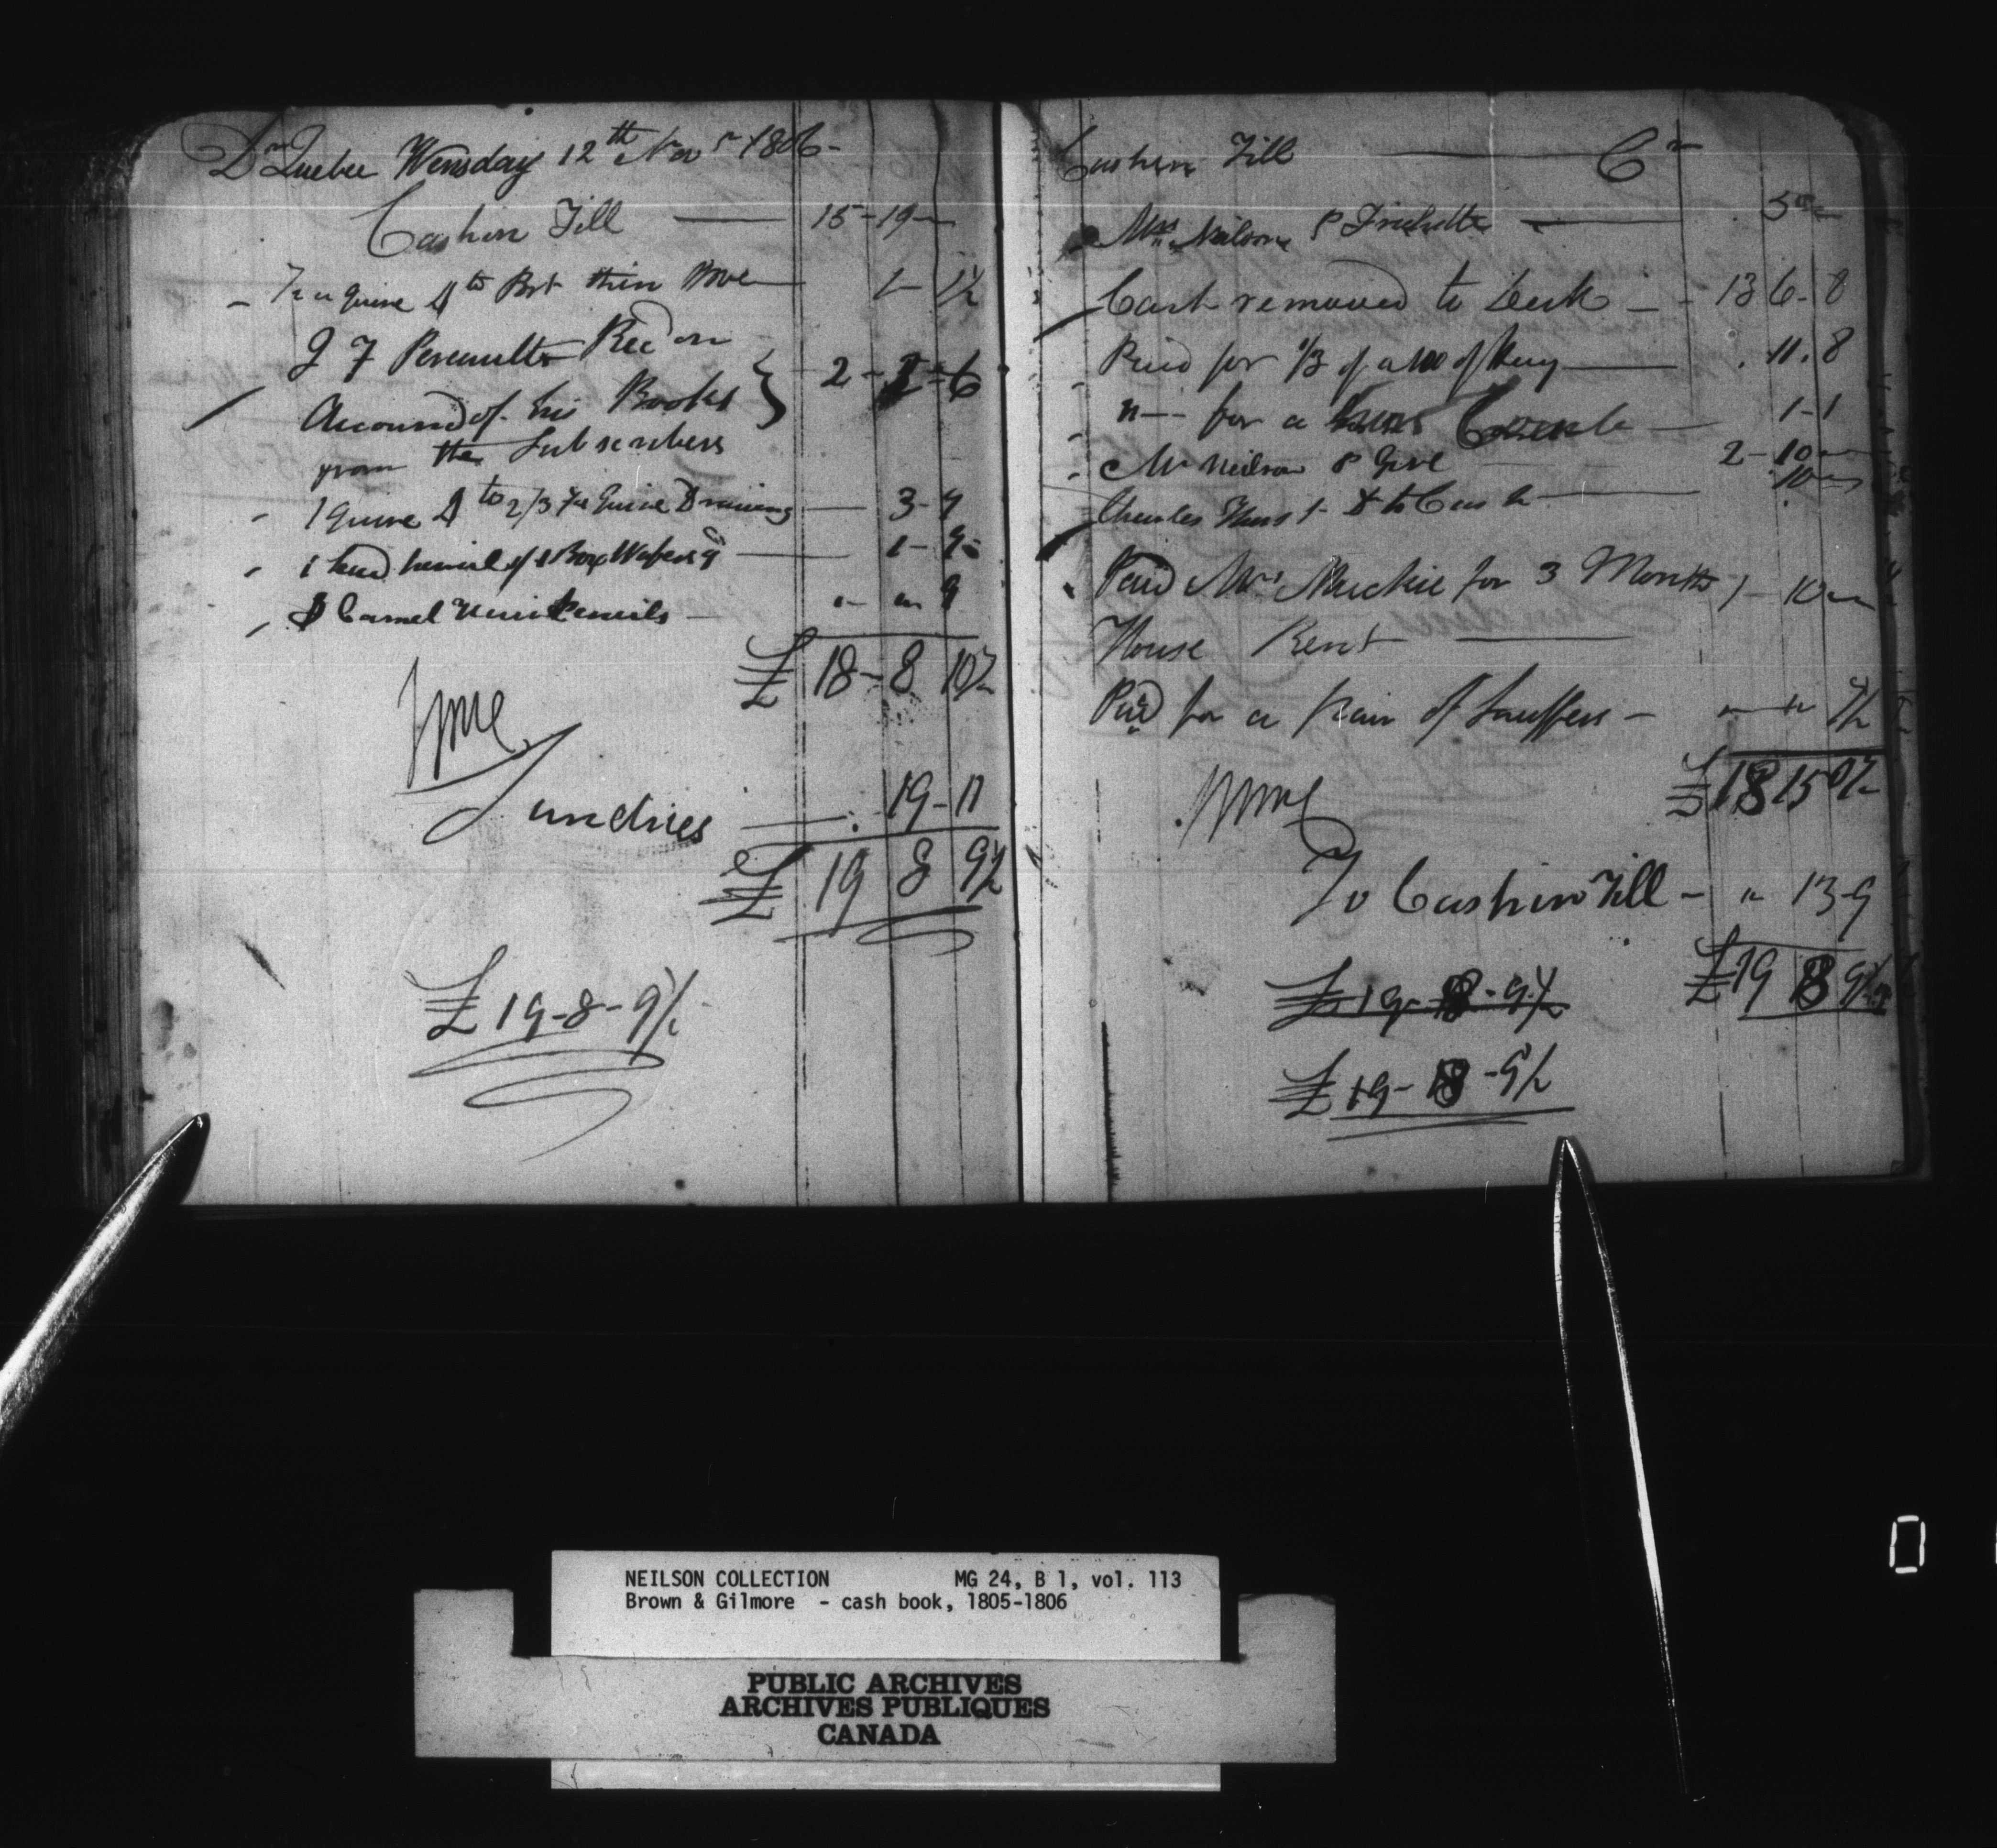 Dr Quebec Wensday 12th Novr 1806-
Cash in Till — 15-19-
1/2 a quire Dto Pot thin Wove — 1-1½
J F Perrault Recd on
Account of his Books } 2-7-6
from the Subscribers
1 Quire Dto 2/3 Quire Drawing — 3-9
1 Lead Pencil 1 Box Wafers 9 — 1-9
Camel Hair Pencils — 9
£ 18-8 10½
Sundries — 19-11
£ 19 8 9½
£ 19-8-9½
Cash in Till — Cr
Mrs Neilson P Frichette — 5
Cash removed to Desk — 13 6-8
Paid for 1/3 of a 100 of Hay — 11.8
"— for a — 1-1
Mr Neilson P — 2-10
Charles Hurst Dto Cash — 10
Paid Mrs Mackie for 3 Months 1-10
House Rent —
Paid for a pair of Snuffers — 7½
£18 15 0½
To Cash in Till — " 13-9
£19 8 9½
£19-8-9½
£19-8-9½
NEILSON COLLECTION MG 24, B 1, vol. 113
Brown & Gilmore - cash book, 1805-1806
PUBLIC ARCHIVES
ARCHIVES PUBLIQUES
CANADA
0